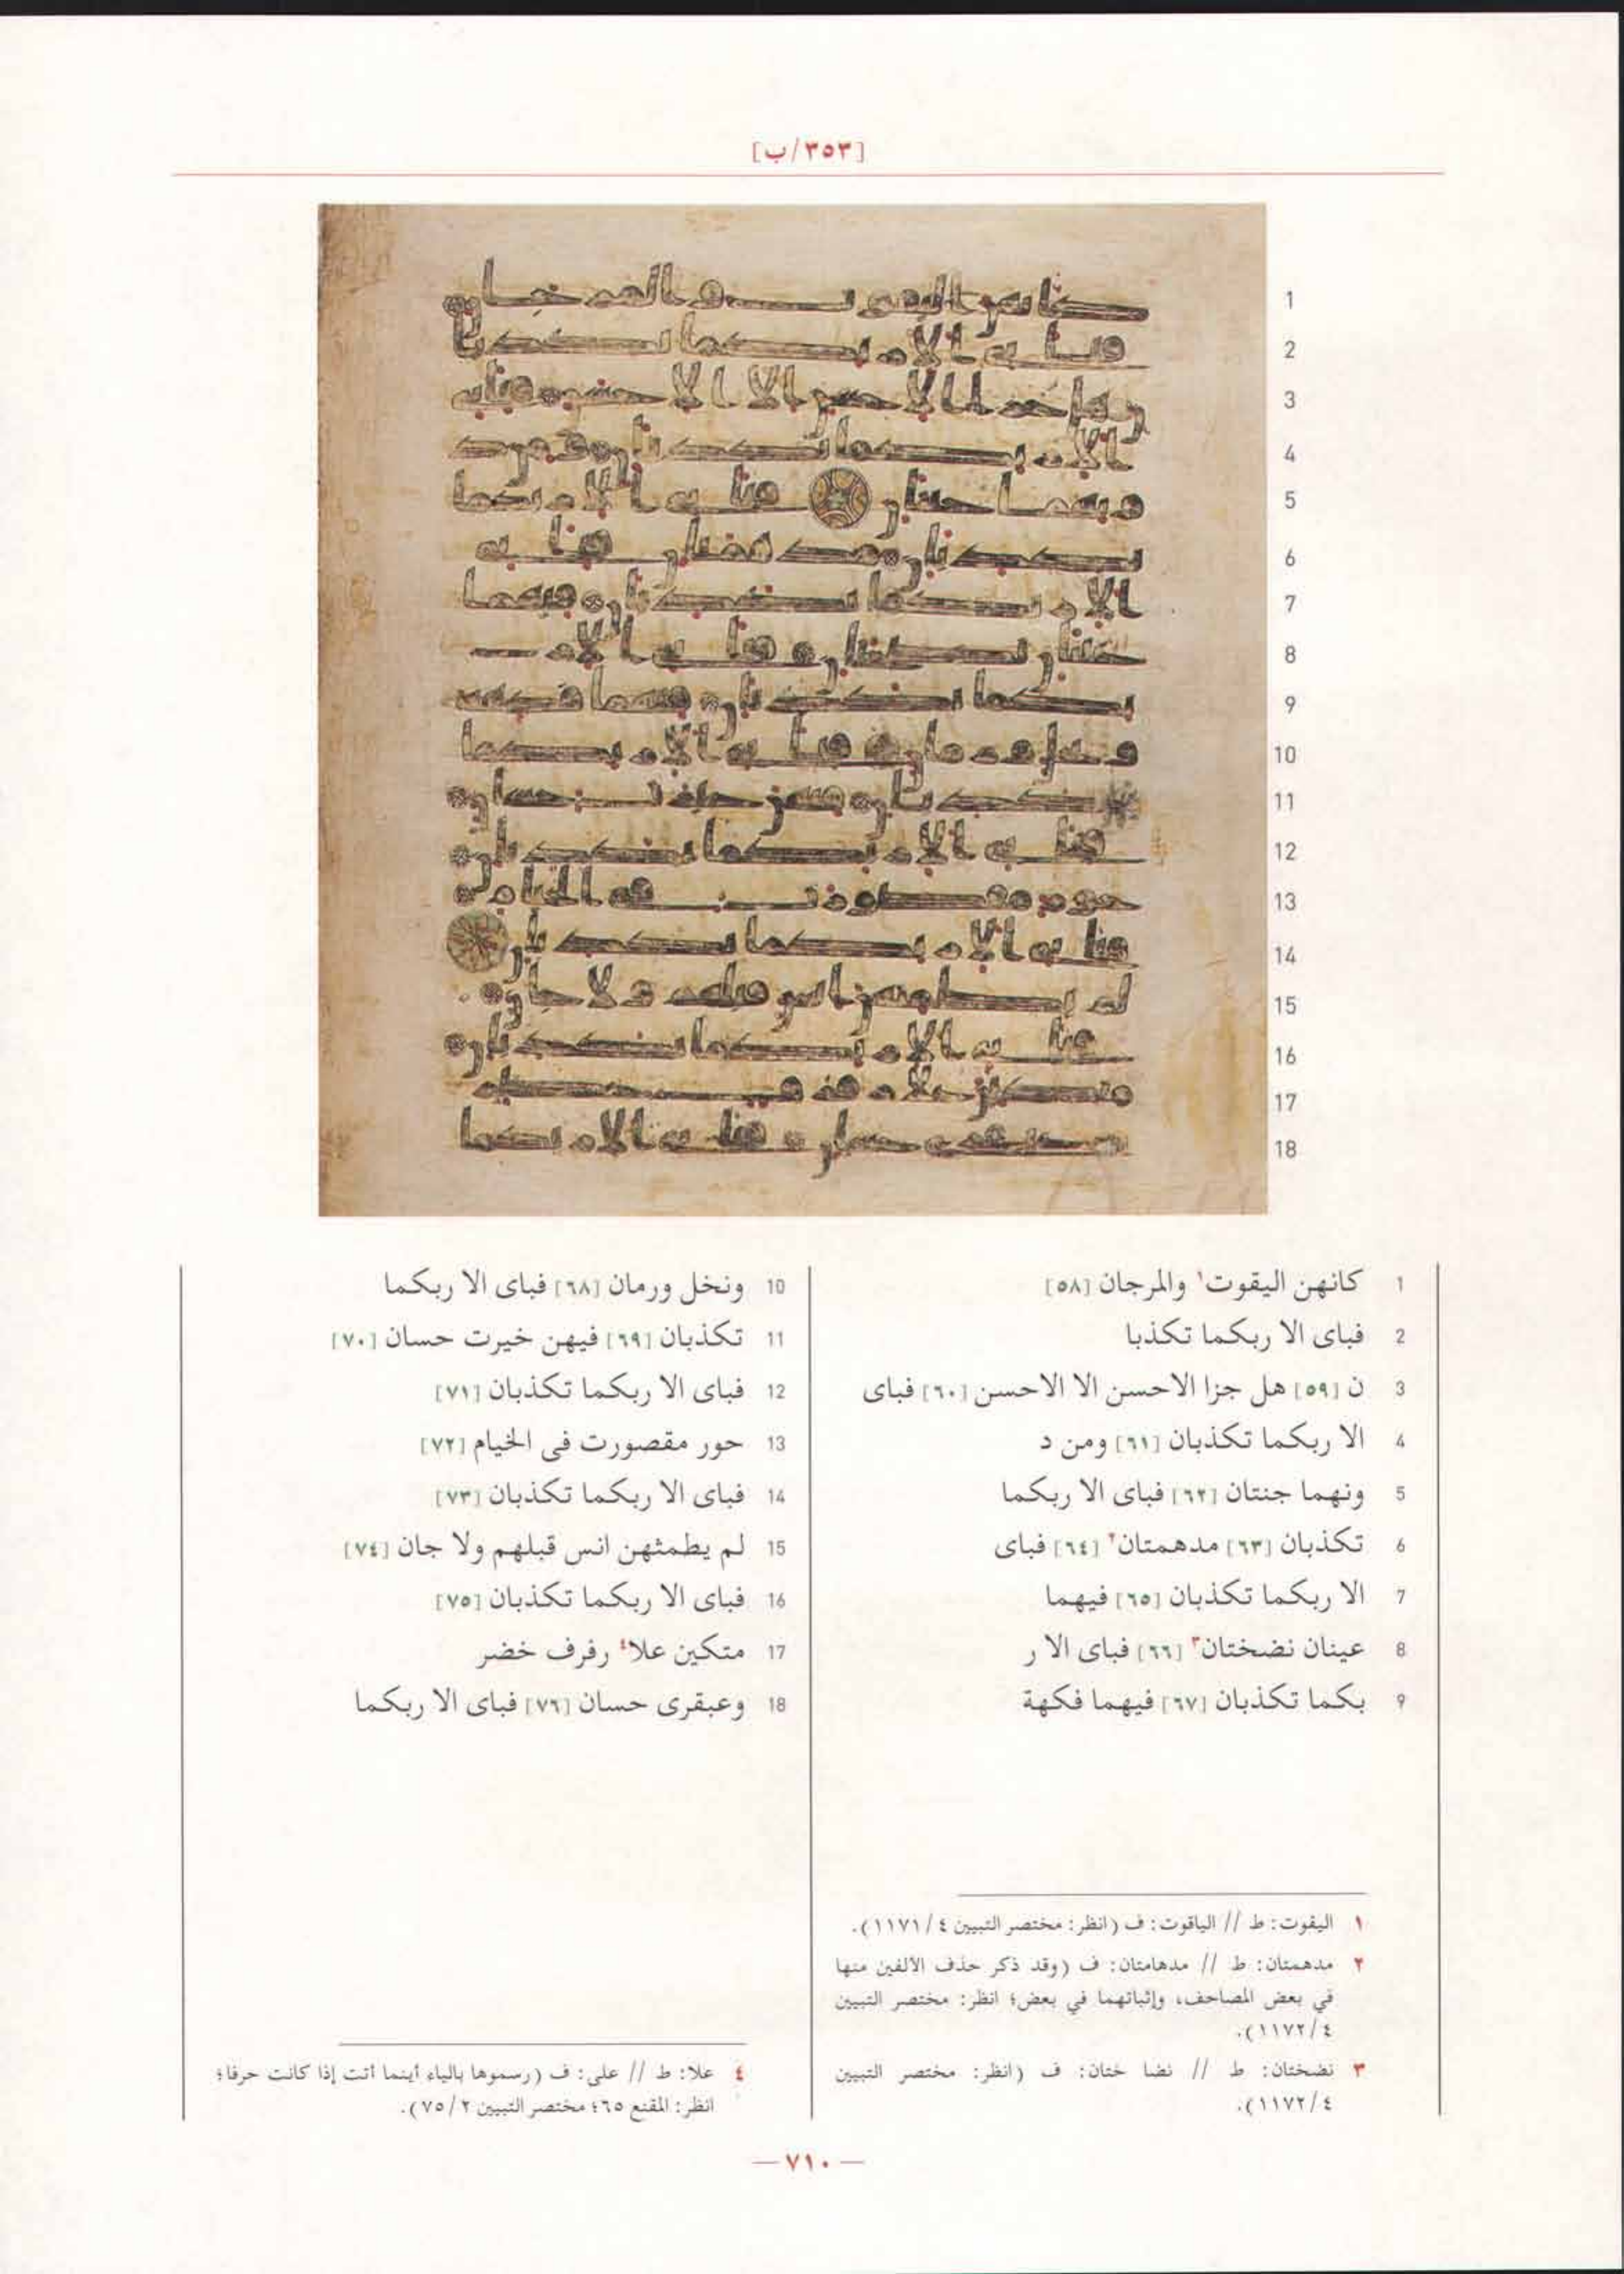 [٣٥٣/ب]
1
2
3
4
5
6
7
8
9
10
11
12
13
14
15
16
17
18
1 كانهن اليقوت١ والمرجان [٥٨]
2 فباى الا ربكما تكذبا
3 ن [٥٩] هل جزا الاحسن الا الاحسن [٦٠] فباى
4 الا ربكما تكذبان [٦١] ومن د
5 ونهما جنتان [٦٢] فباى الا ربكما
6 تكذبان [٦٣] مدهمتان٢ [٦٤] فباى
7 الا ربكما تكذبان [٦٥] فيهما
8 عينان نضختان٣ [٦٦] فباى الا ر
9 بكما تكذبان [٦٧] فيهما فكهة
10 ونخل ورمان [٦٨] فباى الا ربكما
11 تكذبان [٦٩] فيهن خيرت حسان [٧٠]
12 فباى الا ربكما تكذبان [٧١]
13 حور مقصورت فى الخيام [٧٢]
14 فباى الا ربكما تكذبان [٧٣]
15 لم يطمثهن انس قبلهم ولا جان [٧٤]
16 فباى الا ربكما تكذبان [٧٥]
17 متكين علا٤ رفرف خضر
18 وعبقرى حسان [٧٦] فباى الا ربكما
١ اليقوت: ط // الياقوت: ف (انظر: مختصر التبيين ٤/١١٧١).
٢ مدهمتان: ط // مدهامتان: ف (وقد ذكر حذف الألفين منها
في بعض المصاحف، وإثباتهما في بعض؛ انظر: مختصر التبيين
٤/١١٧٢).
٣ نضختان: ط // نضا ختان: ف (انظر: مختصر التبيين
٤/١١٧٢).
٤ علا: ط // على: ف (رسموها بالياء أينما أتت إذا كانت حرفا؛
انظر: المقنع ٦٥؛ مختصر التبيين ٢/٧٥).
— ٧١٠ —